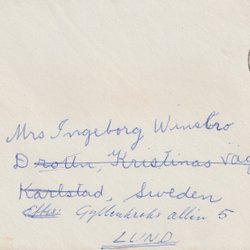 Mrs Ingeborg Winsbro
Drottn, Kristinas Väg
Karlstad, Sweden
Gyllenkroks allén 5
LUND